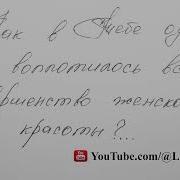 Как в Тебе од
воплотилось вс
ершенство женско
красоты?...
YouTube.com/@L